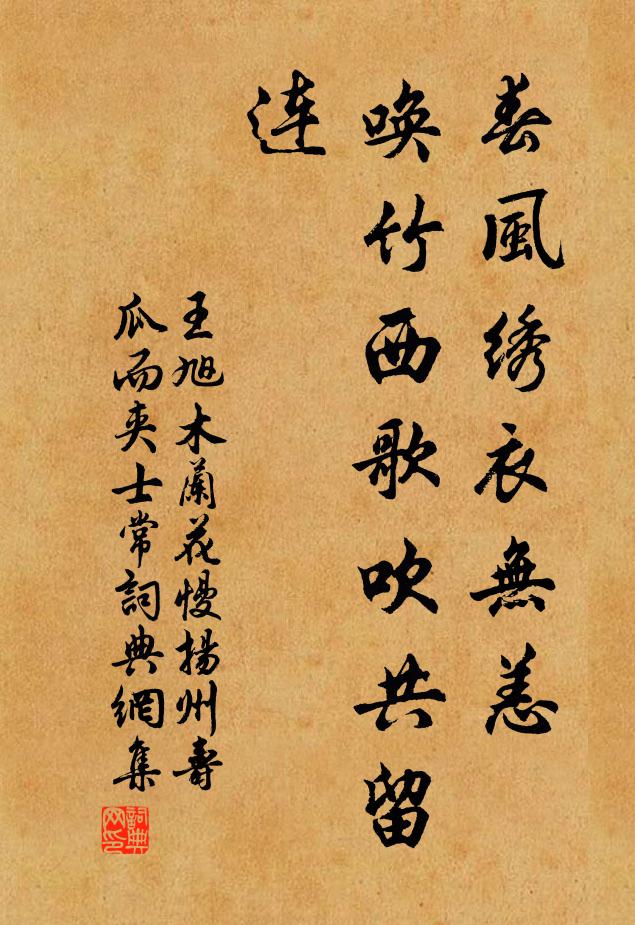 春風綉衣無恙
喚竹西歌吹共留
連
王旭木蘭花慢揚州壽
瓜而夾士常詞典網集
詞典网印